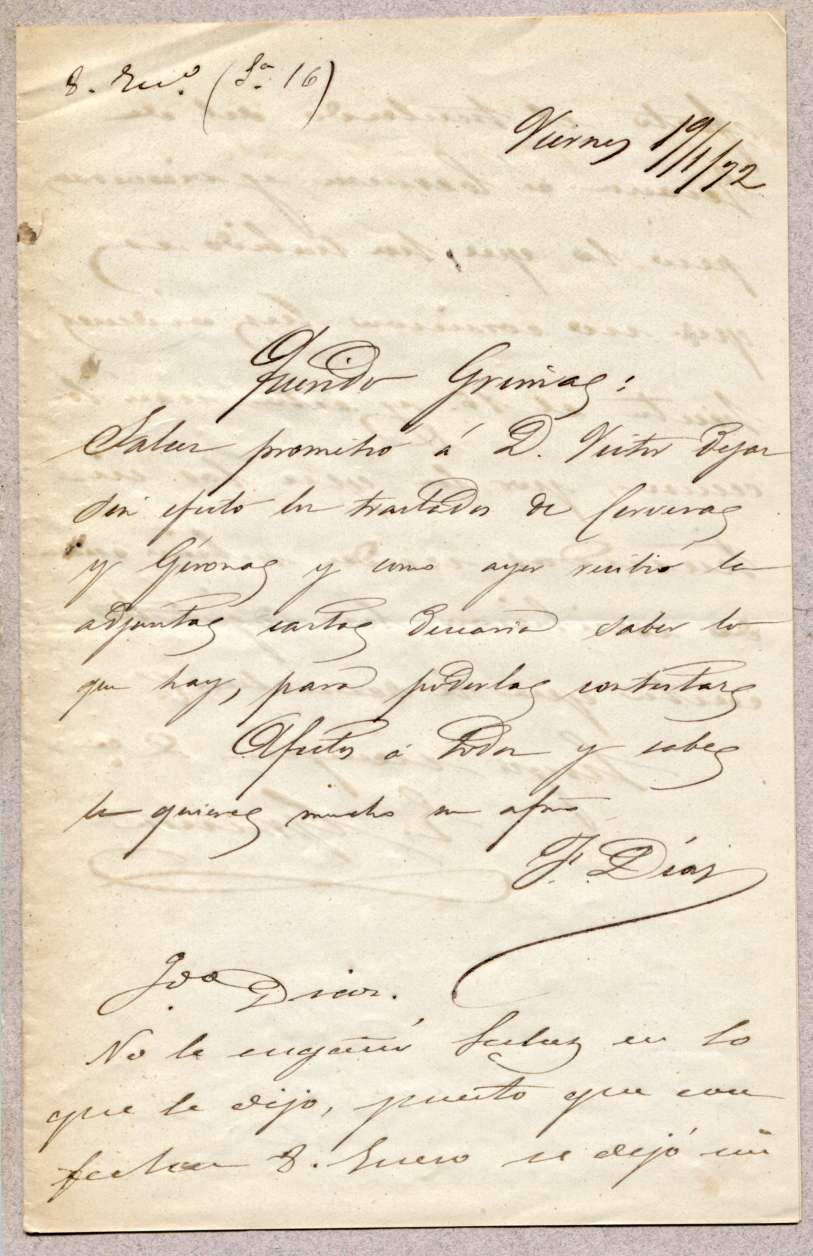 8. En.º (Sª. 16)
Viernes 19/1/72
Querido Grimas:
prometió á D. Victor Dejar
sin efecto los tractados de Cerveras
y Géronas y como ayer recibió la
adjuntas cartas Desearia saber lo
que hay, para poderlas contestar
Afectos á todos y sabes
te quieres mucho su afmo
F. Díaz
Diaz.
No le engañó en lo
que le dijo, puesto que con
fecha 8. Enero se dejó sin